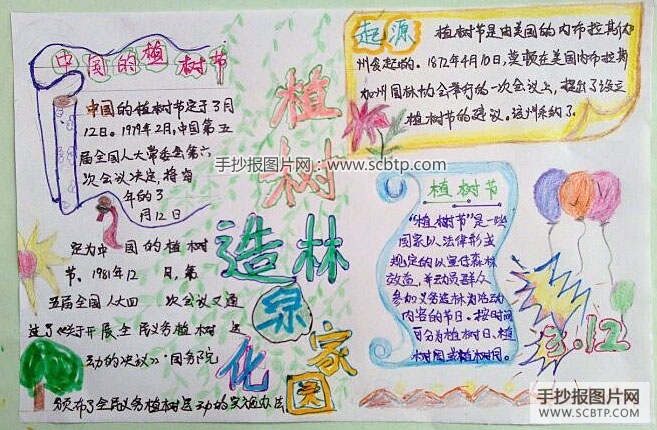 中国的植树节
中国的植树节定于3月
12日。1979年2月,中国第五
届全国人大常委会第六
次会议决定,将每
年的3
月12日
定为中国的植树
节。1981年12月,第
五届全国人大四次会议又通
过了《关于开展全民义务植树运
动的决议》。国务院
颁布了全民义务植树运动的实施办法
植树
造林
绿化
家园
起源
植树节是由美国的内布拉斯
州发起的。1872年4月10日,莫顿在美国内布拉斯
加州园林协会举行的一次会议上,提出了设立
植树节的建议。该州采纳了
植树节
“植树节”是一些
国家以法律形式
规定的以宣传森林
效益,并动员群众
参加义务造林为活动
内容的节日。按时间
可分为植树日、植
树周或植树月。
3.12
手抄报图片网:www.scbtp.com
手抄报图片网
WWW.SCBTP.COM